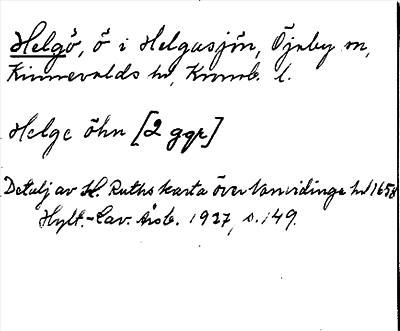 Helgö, ö i Helgasjön, Öjaby sn,
Kinnevalds hd, Kronob. l.
Helge öhn [2 ggr]
Detalj av H. Ruths karta över Norrvidinge hd 1658
Hylt.-Cav. Årsb. 1927, s. 149.